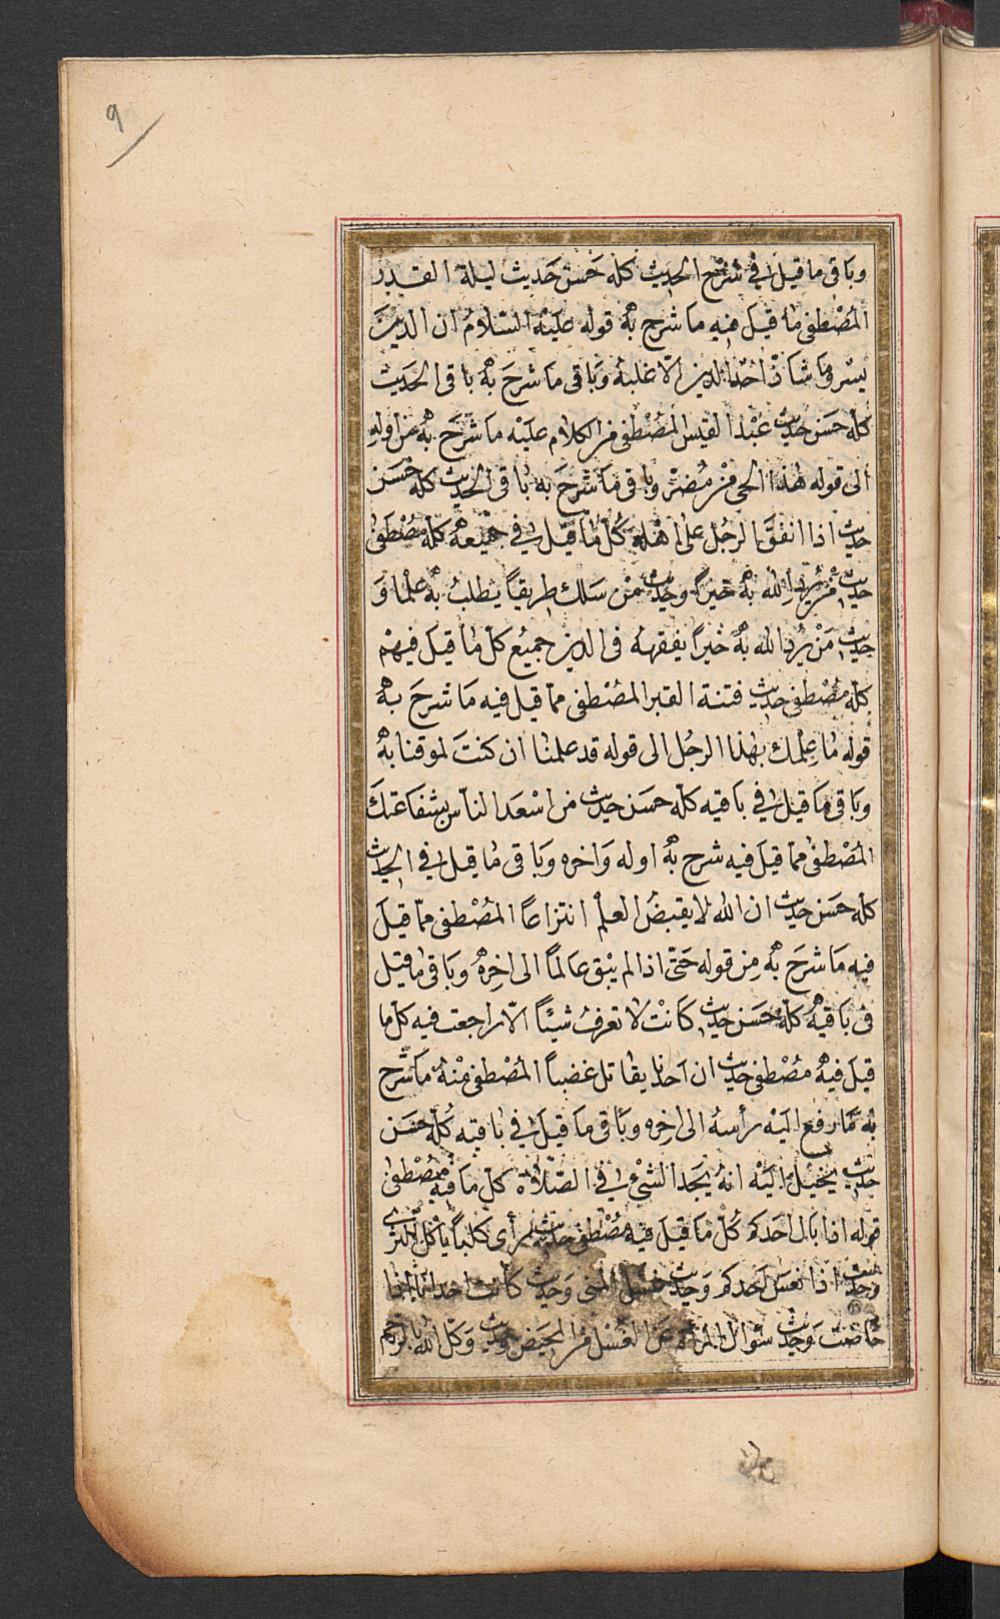 ٩
وباقى ما قيل فى شرح الحديث كله حَسن حَديث ليلة القدر
المُصْطفى ما قيل فيه ما شرح به قوله عليه السَّلامُ ان الدينَ
يسْر وما شاذّ احدٌ الدين الّا غلبهُ وَباقى ما شرحَ به باقى الحَديث
كله حسَن حديث عبْد القيس المصْطفى من الكلام عليْه ما شرَح به من اوله
الى قوله هذا الحى منْ مُضَرْ وباقى ما شرحَ به باقى الحديث كله حَسَن
حديث اذا انفقَ الرجُل على اهْله كُل ما قيل فى جميعه كله مصْطفى
حديث منْ يُرد الله به خيرًا وحديث منْ سَلك طريقاً يطلبُ به علمًا وَ
حديث مَنْ يُرد الله بهُ خَيراً يفقههُ فى الدين جميُع كل ما قيلَ فيهمْ
كله مصْطفى حديث فتنة القبر المصْطفى مما قيل فيه مَا شرحَ به
قوله ما عِلمك بهذا الرجُل الى قوله قد علمنا ان كنتَ لموقنا به
وباقى ما قيل فى باقيه كله حسَن حديث من اسْعَد الناس بشفاعتكَ
المُصْطفى مما قيلَ فيه شرح به اوله وَاخره وَباقى ما قيل فى الحديث
كله حسَن حديث ان الله لا يقبضُ العلْم انتزاعًا المصْطفى مما قيلَ
فيه مَا شرحَ به مِن قوله حَتى اذا لم يبْق عالماً الى اخِرهُ وبَاقى ما قيل
فى باقيهُ كله حسَن حديث كانتْ لا تعرفُ شيئًا الّا راجعت فيه كل ما
قيلَ فيهُ مصْطفى حديث ان احدنا يقاتل غضباً المصْطفى منْهُ ما شرح
به فما رفع اليْه رأسهُ الى اخِره وبَاقى ما قيلَ فى باقيه كله حسَن
حديث يخيّل اليَه انهُ يجَد الشئ فى الصَّلاة كل ما فيه مصْطفى
قوله اذا بَال احَدكم كُل ما قيلَ فيه مُصْطفى حديث رأى كلباً يأكل الثرى
وحديث اذا نعَسَ احَدكم وَحديث غسْل المنى وَحديث كانت احدانا اذا
حاضت وَحديث سُوال المرأة عَن الغسْل من الحيَض وحديث وَكّل الله بالرحم